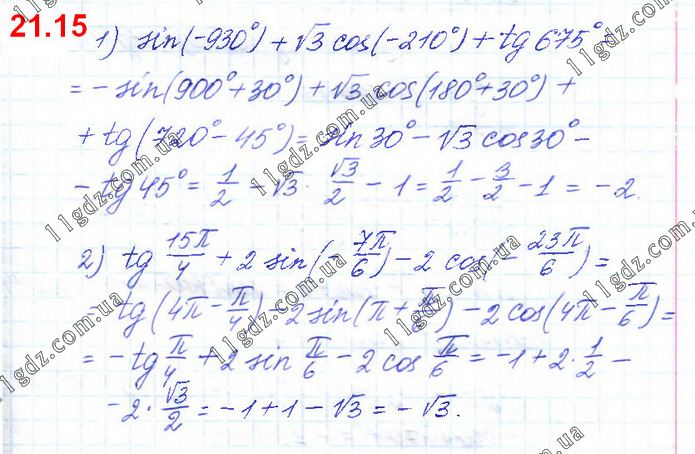 21.15
1) sin(-930°) + √3 cos(-210°) + tg 675° =
= - sin(900° + 30°) + √3 cos(180° + 30°) +
+ tg(720° - 45°) = sin 30° - √3 cos 30° -
- tg 45° = 1/2 - √3 · √3/2 - 1 = 1/2 - 3/2 - 1 = -2.
2) tg 15π/4 + 2 sin(-7π/6) - 2 cos(-23π/6) =
= tg(4π - π/4) - 2 sin(π + π/6) - 2 cos(4π - π/6) =
= - tg π/4 + 2 sin π/6 - 2 cos π/6 = -1 + 2 · 1/2 -
- 2 · √3/2 = -1 + 1 - √3 = -√3.
11gdz.com.ua